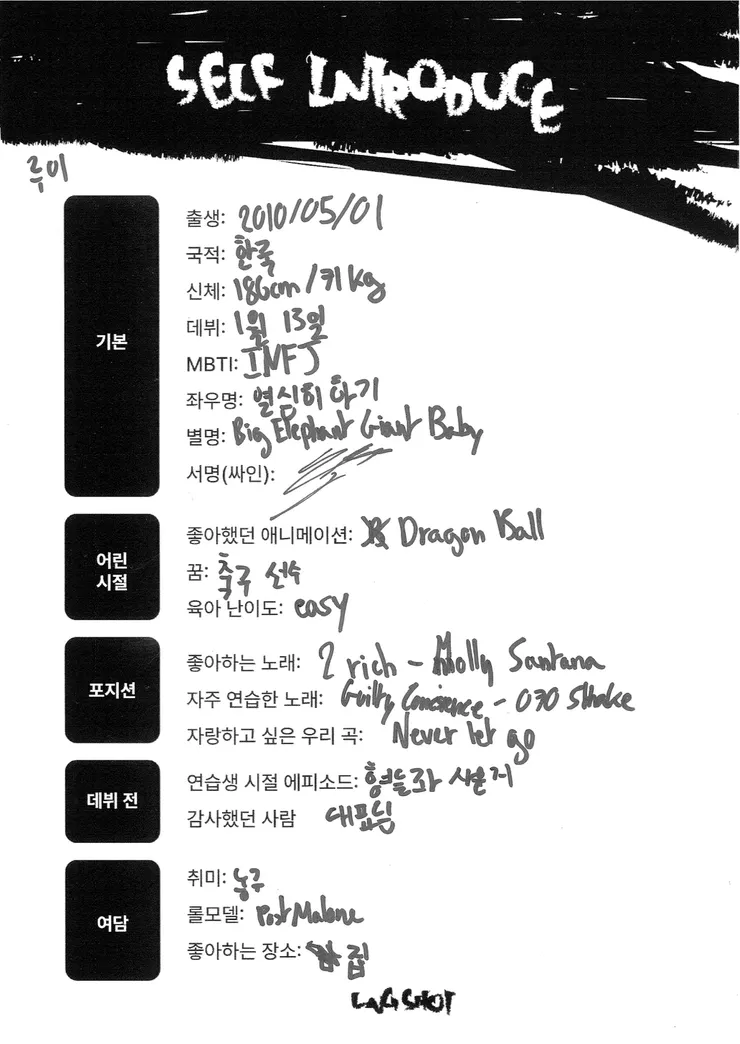 SELF INTRODUCE
루이
기본
출생: 2010/05/01
국적: 한국
신체: 186cm / 71kg
데뷔: 1월 13일
MBTI: INFJ
좌우명: 열심히 하기
별명: Big Elephant Giant Baby
서명(싸인):
어린
시절
좋아했던 애니메이션: Dragon Ball
꿈: 축구 선수
육아 난이도: easy
포지션
좋아하는 노래: 2 rich - Molly Santana
자주 연습한 노래: Guilty Conscience - 070 Shake
자랑하고 싶은 우리 곡: Never let go
데뷔 전
연습생 시절 에피소드: 형들과
감사했던 사람 대표님
여담
취미: 농구
롤모델: Post Malone
좋아하는 장소: 집
LNGSHOT